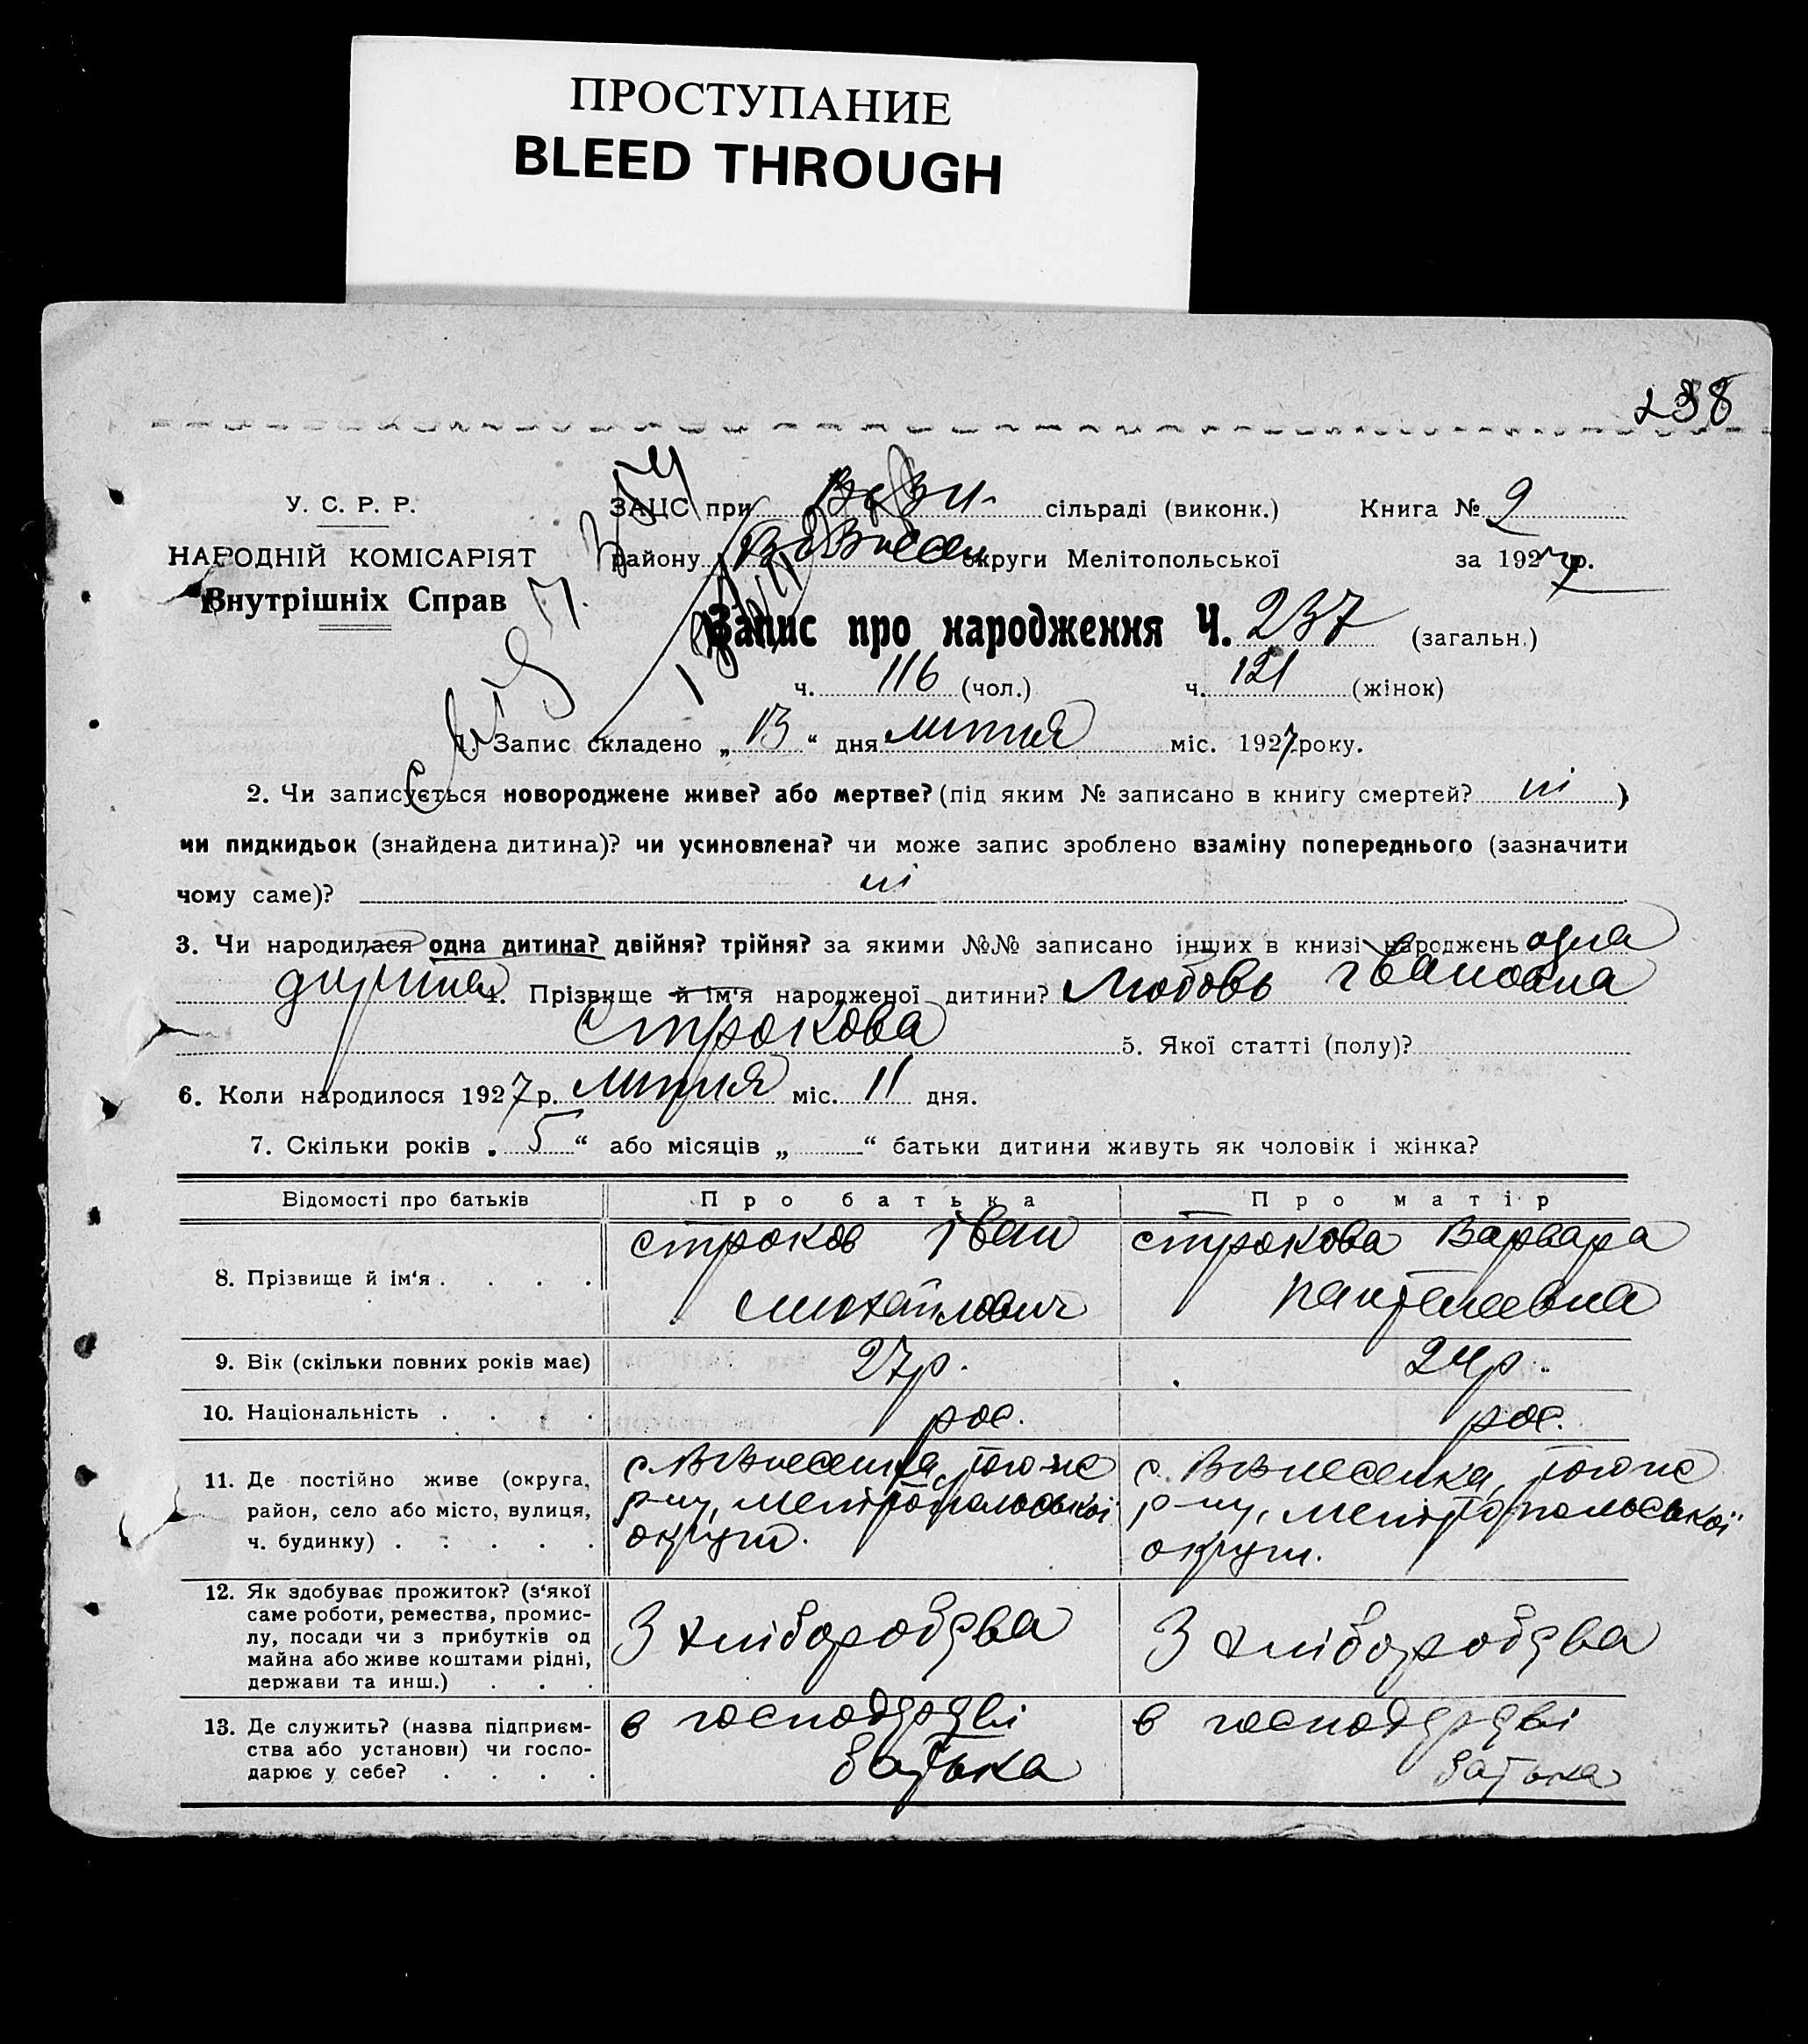 ПРОСТУПАНИЕ
BLEED THROUGH
238
У. С. Р. Р.
НАРОДНІЙ КОМІСАРІЯТ
Внутрішніх Справ
ЗАЦС при сільраді (виконк.) Книга № 2
району округи Мелітопольської за 1927 р.
Запис про народження Ч. 237 (загальн.)
ч. 116 (чол.) ч. 121 (жінок)
1. Запис складено „ 13 “ дня липня міс. 1927 року.
2. Чи записується новороджене живе? або мертве? (під яким № записано в книгу смертей? ні )
чи пидкидьок (знайдена дитина)? чи усиновлена? чи може запис зроблено взаміну попереднього (зазначити
чому саме)? ні
3. Чи народилася одна дитина? двійня? трійня? за якими №№ записано інших в книзі народжень одна
дитина 4. Прізвище й ім‘я народженої дитини? Любовь Івановна
Строкова 5. Якої статті (полу)?
6. Коли народилося 1927 р. липня міс. 11 дня.
7. Скільки років „ 5 “ або місяців „ “ батьки дитини живуть як чоловік і жінка?
Відомості про батьків Про батька Про матір
8. Прізвище й ім‘я . . . .
Строков Іван
Михайлович
Строкова Варвара
Пантелеевна
9. Вік (скільки повних років має) 27 р. 24 р.
10. Національність . . . . рос. рос.
11. Де постійно живе (округа,
район, село або місто, вулиця,
ч. будинку) . . . . .
с. Вознесенка,
р-ну, Мелітопольської
округи.
с. Вознесенка,
р-ну, Мелітопольської
округи.
12. Як здобуває прожиток? (з‘якої
саме роботи, ремества, промис-
лу, посади чи з прибутків од
майна або живе коштами рідні,
держави та инш.) . . .
З хліборобства
З хліборобства
13. Де служить? (назва підприєм-
ства або установи) чи госпо-
дарює у себе? . . . .
в господарстві
батька
в господарстві
батька